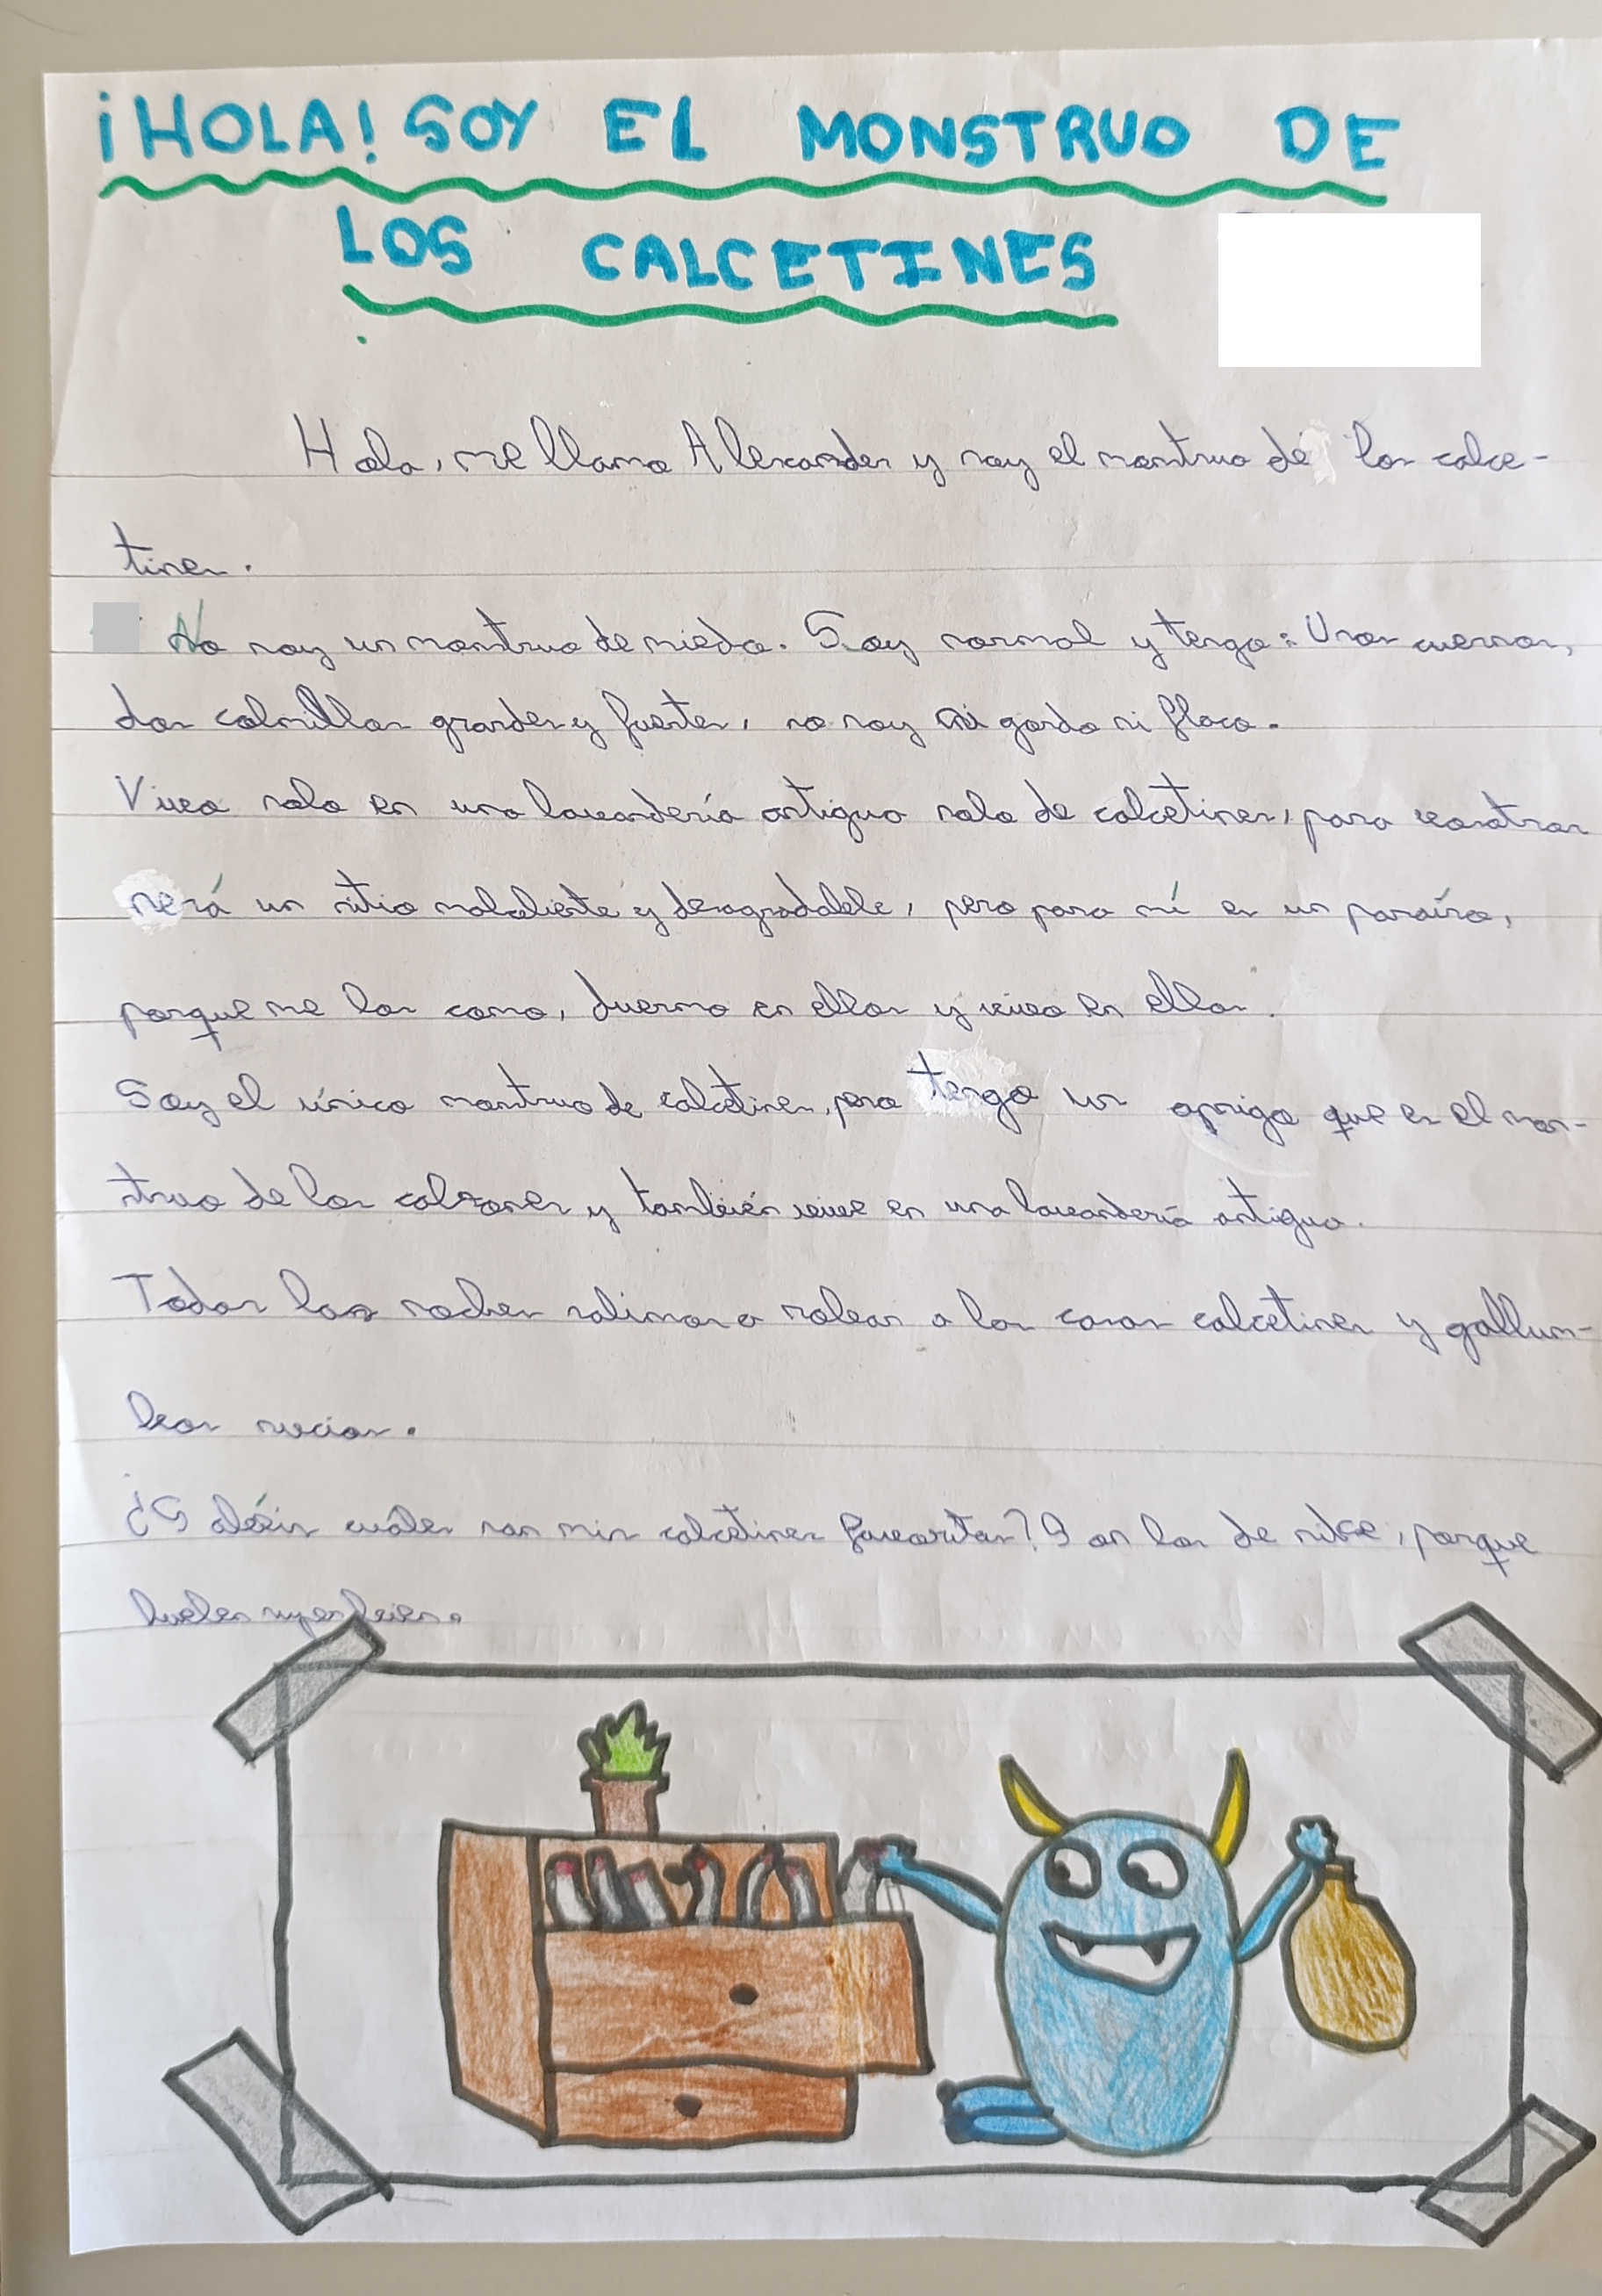 ¡HOLA! SOY EL MONSTRUO DE
LOS CALCETINES
Hola, me llamo Alexander y soy el monstruo de los calce-
tines.
No soy un monstruo de miedo. Soy normal y tengo: Unos cuernos,
dos colmillos grandes y fuertes, no soy ni gordo ni flaco.
Vivo solo en una lavandería antigua solo de calcetines, para vosotros
será un sitio maloliente y desagradable, pero para mí es un paraíso,
porque me los como, duermo en ellos y vivo en ellos.
Soy el único monstruo de calcetines, pero tengo un amigo que es el mons-
truo de los calzones y también vive en una lavandería antigua.
Todas las noches salimos a robar a las casas calcetines y gallum-
bos sucios.
¿Sabéis cuáles son mis calcetines favoritos? Son los de nike, porque
huelen super bien.